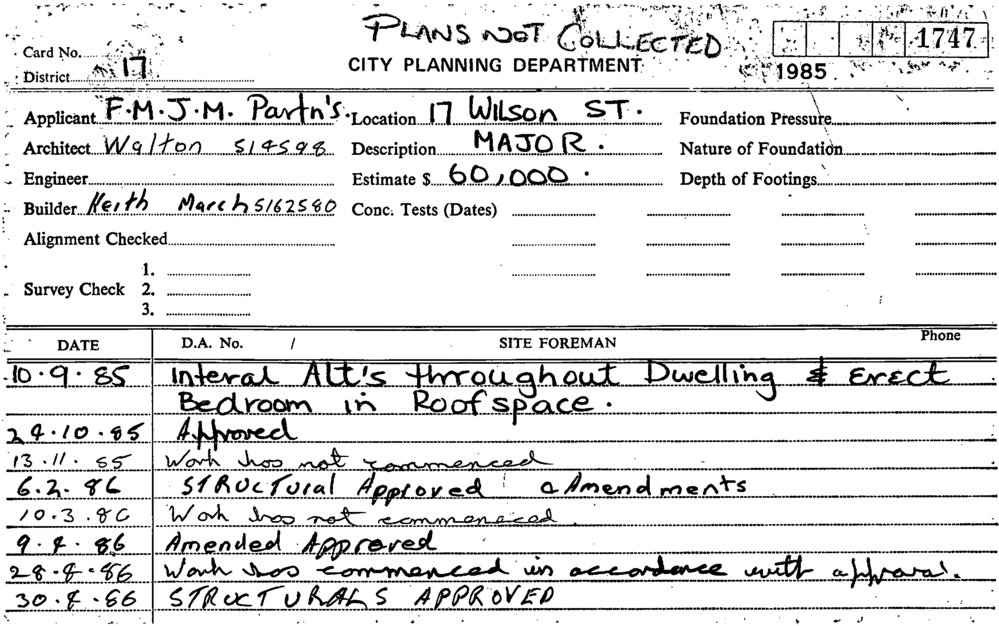 PLANS NOT COLLECTED
Card No.
1747
District 17
CITY PLANNING DEPARTMENT
1985
Applicant F.M.J.M. Partn's. Location 17 WILSON ST. Foundation Pressure
Architect Walton 514598 Description MAJOR. Nature of Foundation
Engineer Estimate $ 60,000. Depth of Footings
Builder Keith March 5162580 Conc. Tests (Dates)
Alignment Checked
1.
Survey Check 2.
3.
DATE D.A. No. / SITE FOREMAN Phone
10.9.85 Interal Alt's throughout Dwelling & Erect
Bedroom in Roof space.
24.10.85 Approved
13.11.85 Work has not commenced
6.2.86 STRUCTUral Approved Amendments
10.3.86 Work has not commenced.
9.4.86 Amended Approved
28.4.86 Work has commenced in accordance with approval.
30.4.86 STRUCTURALS APPROVED